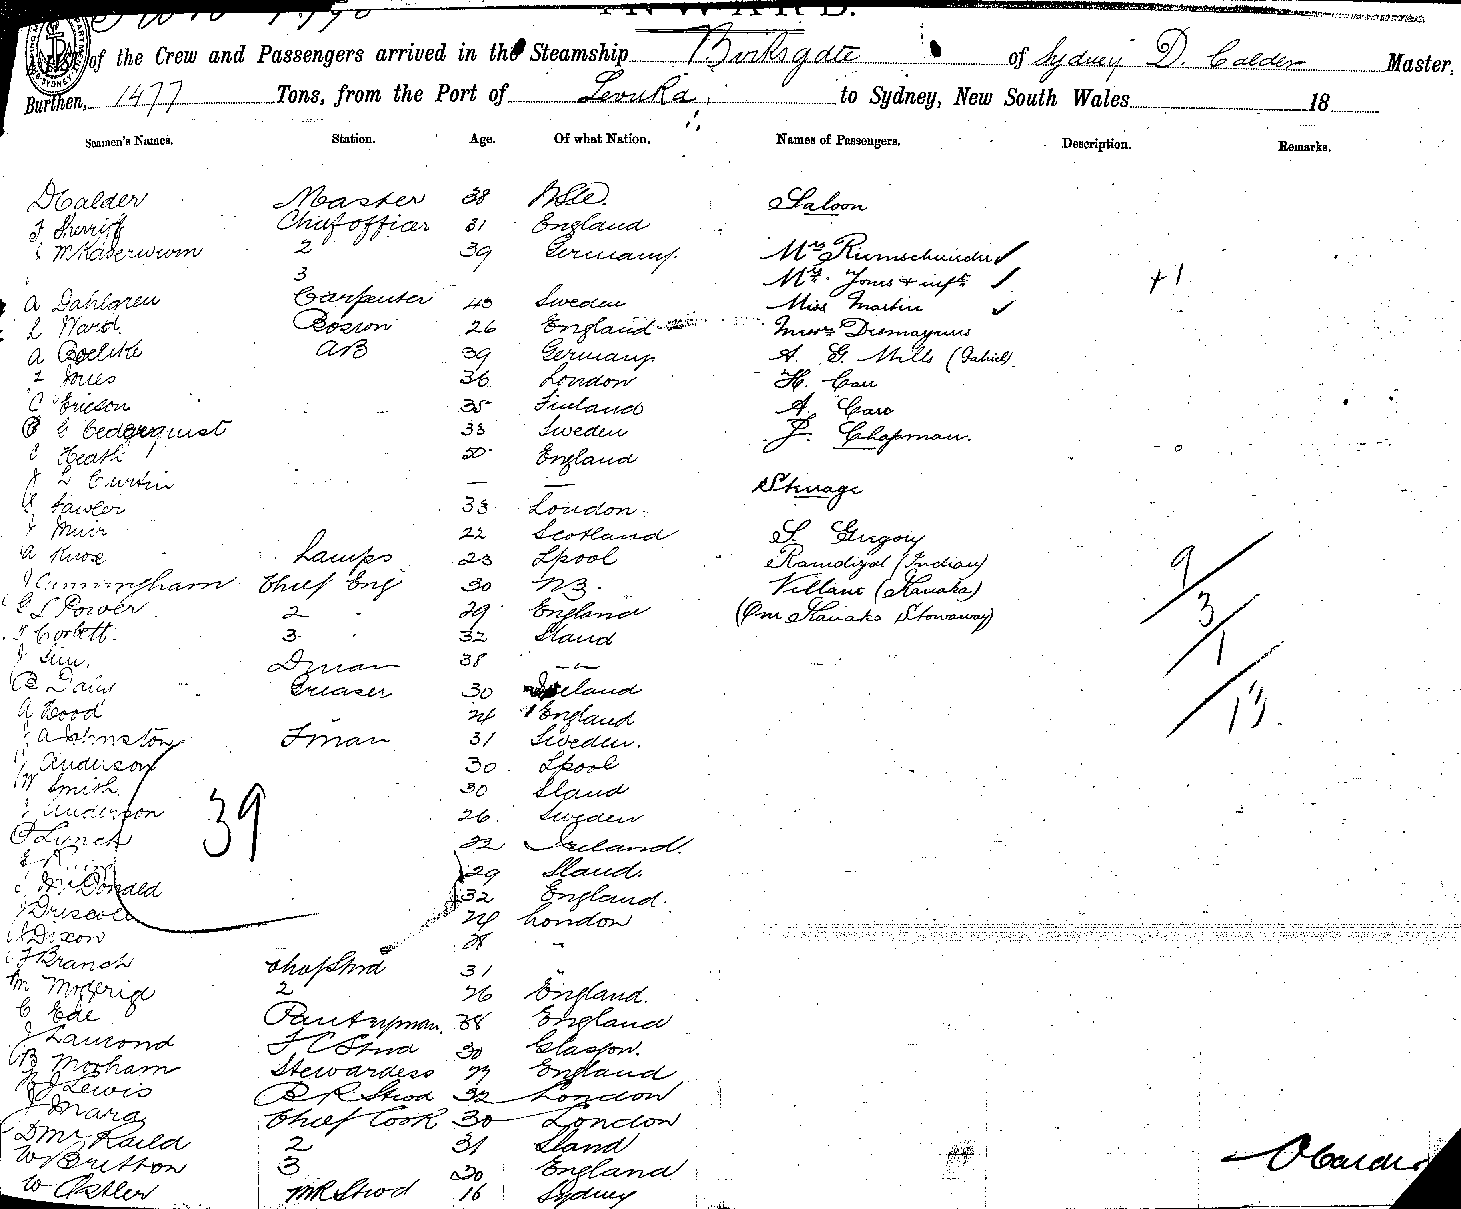 INWARD.
of the Crew and Passengers arrived in the Steamship Birksgate of Sydney D. Calder Master,
Burthen, 1477 Tons, from the Port of Levuka, to Sydney, New South Wales 18
Seamen's Names. Station. Age. Of what Nation. Names of Passengers. Description. Remarks.
D Calder Master 38 Saloon
Sherriff Chief officer 31 England
2 39 Germany. Mrs
3 Mrs. Jones + inft +1
A Dahlgren Carpenter 45 Sweden Miss Martin
L Ward. Bosson 26 England
A AB 39 Germany A. G. Mills
Jones 36 London H. Carr
C Ericson 35 Finland A. Caro
C Cederquist 33 Sweden J. Chapman.
Heath 20 England
Curtin — — Steerage
Lawler 33 London
J Muir 22 Scotland S. Gregory
A Knox Lamps 23 Lpool (Indian)
J Cunningham Chief Eng 30 N.Z. (Kanaka) 9
E S Power 2 29 England (One Kanaka Stowaway) 3
Corbett. 3 32 Sland 1
J Sim. Dman 38 — —
Davis Greaser 30 Ireland
A Hood 24 England 13.
J A Johnston Fman 31 Sweden.
Anderson 30 Lpool
W Smith. 30 Sland
J Anderson 26 Sweden
39
P Lynch 22 Ireland.
29 Sland.
McDonald 32 England.
J Driscoll 24 London
Dixon 28 "
F Branch Chief Stwd 31 "
M 2 26 England.
C Ede Pantryman. 38 England
J Lamond F C Stwd 30 Glasgow.
B Morham Stewardess 29 England
Lewis B R Stwd 32 London
J Mara Chief Cook 30 London
D Mc Kaild 2 31 Sland
W Britton 3 20 England
W Ostler M R Stwd 16 Sydney
D Calder